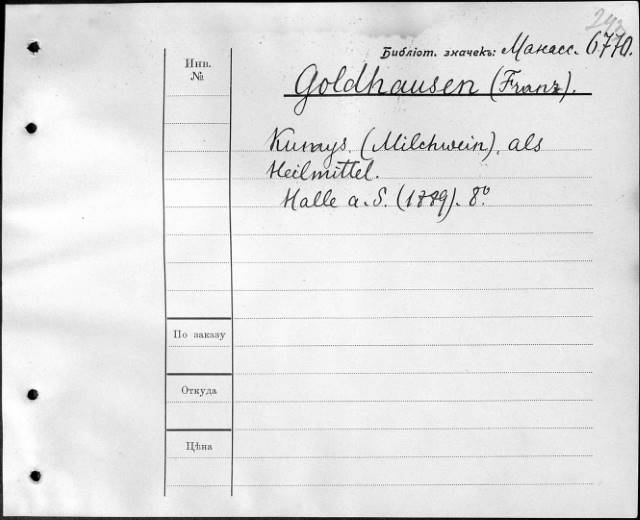 242
Библіот. значекъ: Манасс. 6770.
Инв.
№
Goldhausen (Franz).
Kumys. (Milchwein). als
Heilmittel.
Halle a. S. (1889). 8°
По заказу
Откуда
Цѣна